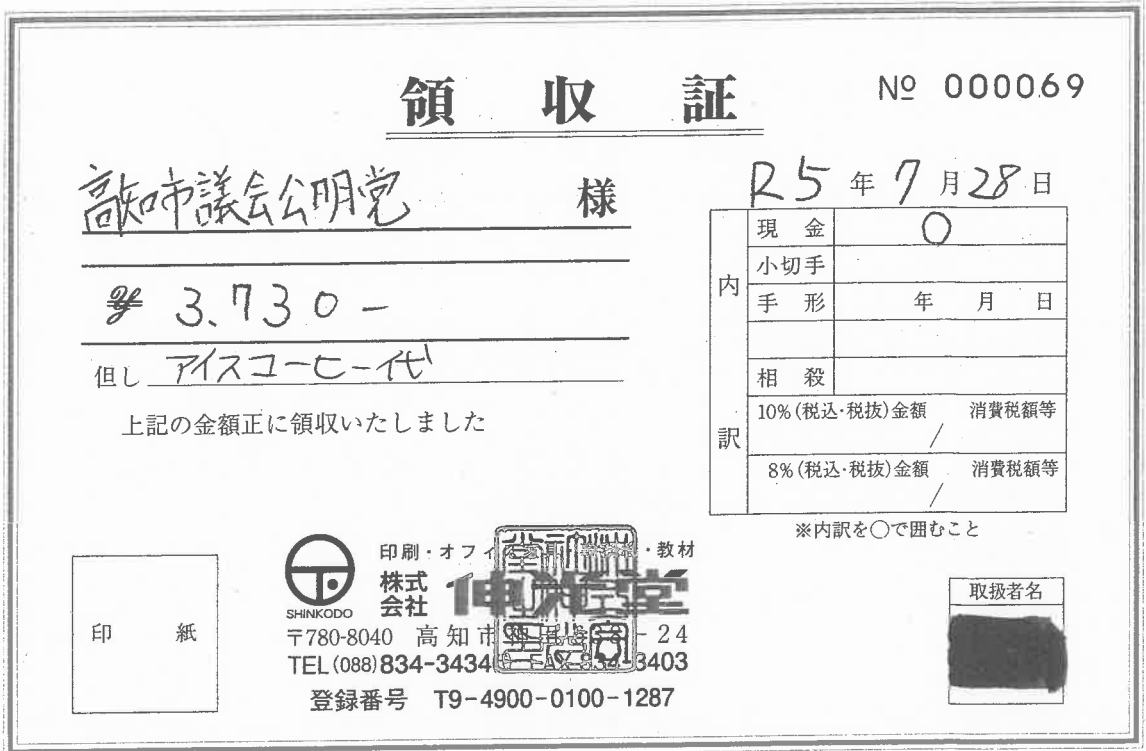 領収証
№ 000069
高知市議会公明党 様
R5年7月28日
¥ 3.730-
但し アイスコーヒー代
上記の金額正に領収いたしました
内訳
現金 ○
小切手
手形 年 月 日
相殺
10%(税込・税抜)金額 消費税額等
/
8%(税込・税抜)金額 消費税額等
/
※内訳を○で囲むこと
印紙
SHINKODO
印刷・オフィ ・教材
株式会社 伸光堂
〒780-8040 高知市 -24
TEL(088)834-3434 3403
登録番号 T9-4900-0100-1287
取扱者名